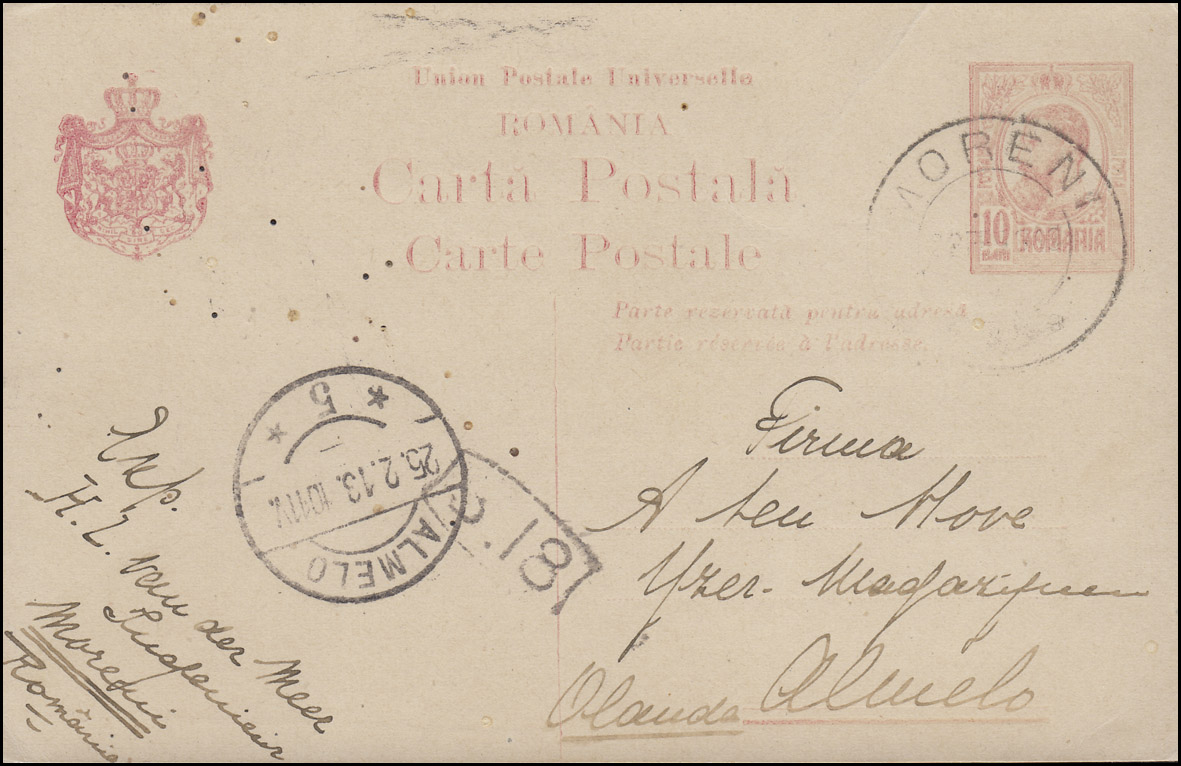 Union Postale Universelle
ROMÂNIA
Cartă Postală
Carte Postale
Parte rezervată pentru adresă
Partie réservée à l'adresse.
MORENI
10
BANI
ROMANIA
5
25.2.13. 10-11V.
ALMELO
2.18
Firma
A ten Hove
Yzer- Magazijnen
Almelo
Olanda
Exp.
H. L. van der Meer
Ingenieur
Moreni
România